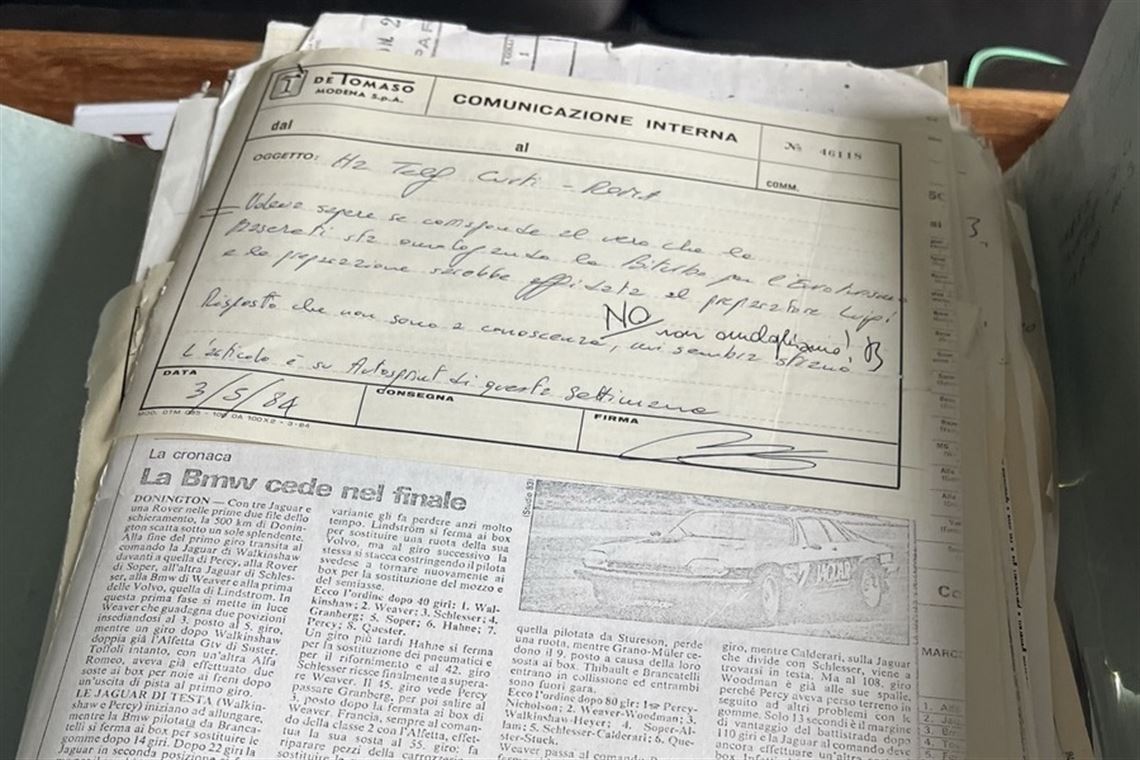 DE TOMASO
MODENA S.p.A.
COMUNICAZIONE INTERNA
№ 46118
dal
al
COMM.
OGGETTO: Ha Telef Curti - Roma
Voleva sapere se corrisponde al vero che la
Maserati sta omologando la Biturbo per l'Euroturismo
e la preparazione sarebbe affidata al preparatore Luigi
NO non omologhiamo!
Risposto che non sono a conoscenza, mi sembra strano
L'articolo è su Autosprint di questa settimana
DATA
3/5/84
CONSEGNA
FIRMA
La cronaca
La Bmw cede nel finale
DONINGTON — Con tre Jaguar e
una Rover nelle prime due file dello
schieramento, la 500 km di Donin-
gton scatta sotto un sole splendente.
Alla fine del primo giro transita al
comando la Jaguar di Walkinshaw
davanti a quella di Percy, alla Rover
di Soper, all'altra Jaguar di Schles-
ser, alla Bmw di Weaver e alla prima
delle Volvo, quella di Lindstrom. In
questa prima fase si mette in luce
Weaver che guadagna due posizioni
insediandosi al 3. posto al 5. giro,
mentre un giro dopo Walkinshaw
doppia già l'Alfetta Gtv di Suster.
Toffoli intanto, con un'altra Alfa
Romeo, aveva già effettuato due
soste ai box per noie ai freni dopo
un'uscita di pista al primo giro.
LE JAGUAR DI TESTA (Walkin-
shaw e Percy) iniziano ad allungare,
mentre la Bmw pilotata da Branca-
telli si ferma ai box per sostituire le
gomme dopo 14 giri. Dopo 22 giri la
Jaguar in seconda posizione si
variante gli fa perdere anzi molto
tempo. Lindström si ferma ai box
per sostituire una ruota della sua
Volvo, ma al giro successivo la
stessa si stacca costringendo il pilota
svedese a tornare nuovamente ai
box per la sostituzione del mozzo e
del semiasse.
Ecco l'ordine dopo 40 giri: 1. Wal-
kinshaw; 2. Weaver; 3. Schlesser; 4.
Granberg; 5. Soper; 6. Hahne; 7.
Percy; 8. Quester.
Un giro più tardi Hahne si ferma
per la sostituzione dei pneumatici e
per il rifornimento e al 42. giro
Schlesser riesce finalmente a supera-
re Weaver. Il 45. giro vede Percy
passare Granberg, per poi salire al
posto dopo la fermata ai box di
Weaver. Francia, sempre al coman-
do della classe 2 con l'Alfetta, effet-
tua la sua sosta al 55. giro; fa
riparare pezzi della carrozzeria
(Studio 83)
JAGUAR
quella pilotata da Stureson, perde
una ruota, mentre Grano-Müler ce-
dono il 9. posto a causa della loro
sosta ai box. Thibault e Brancatelli
entrano in collisione ed entrambi
sono fuori gara.
Ecco l'ordine dopo 80 giri: 1. Percy-
Nicholson; 2. Weaver-Woodman; 3.
Walkinshaw-Heyer; 4. Soper-Al-
lam; 5. Schlesser-Calderari; 6. Que-
ster-Stuck.
Weaver passa al comando
giro, mentre Calderari, sulla Jaguar
che divide con Schlesser, viene a
trovarsi in testa. Ma al 108. giro
Woodman è già alle sue spalle,
perché Percy aveva perso terreno in
seguito ad altri problemi con le
gomme. Solo 13 secondi è il margine
di vantaggio del battistrada dopo
110 giri e la Jaguar al comando deve
ancora effettuare un'altra sosta
MARC